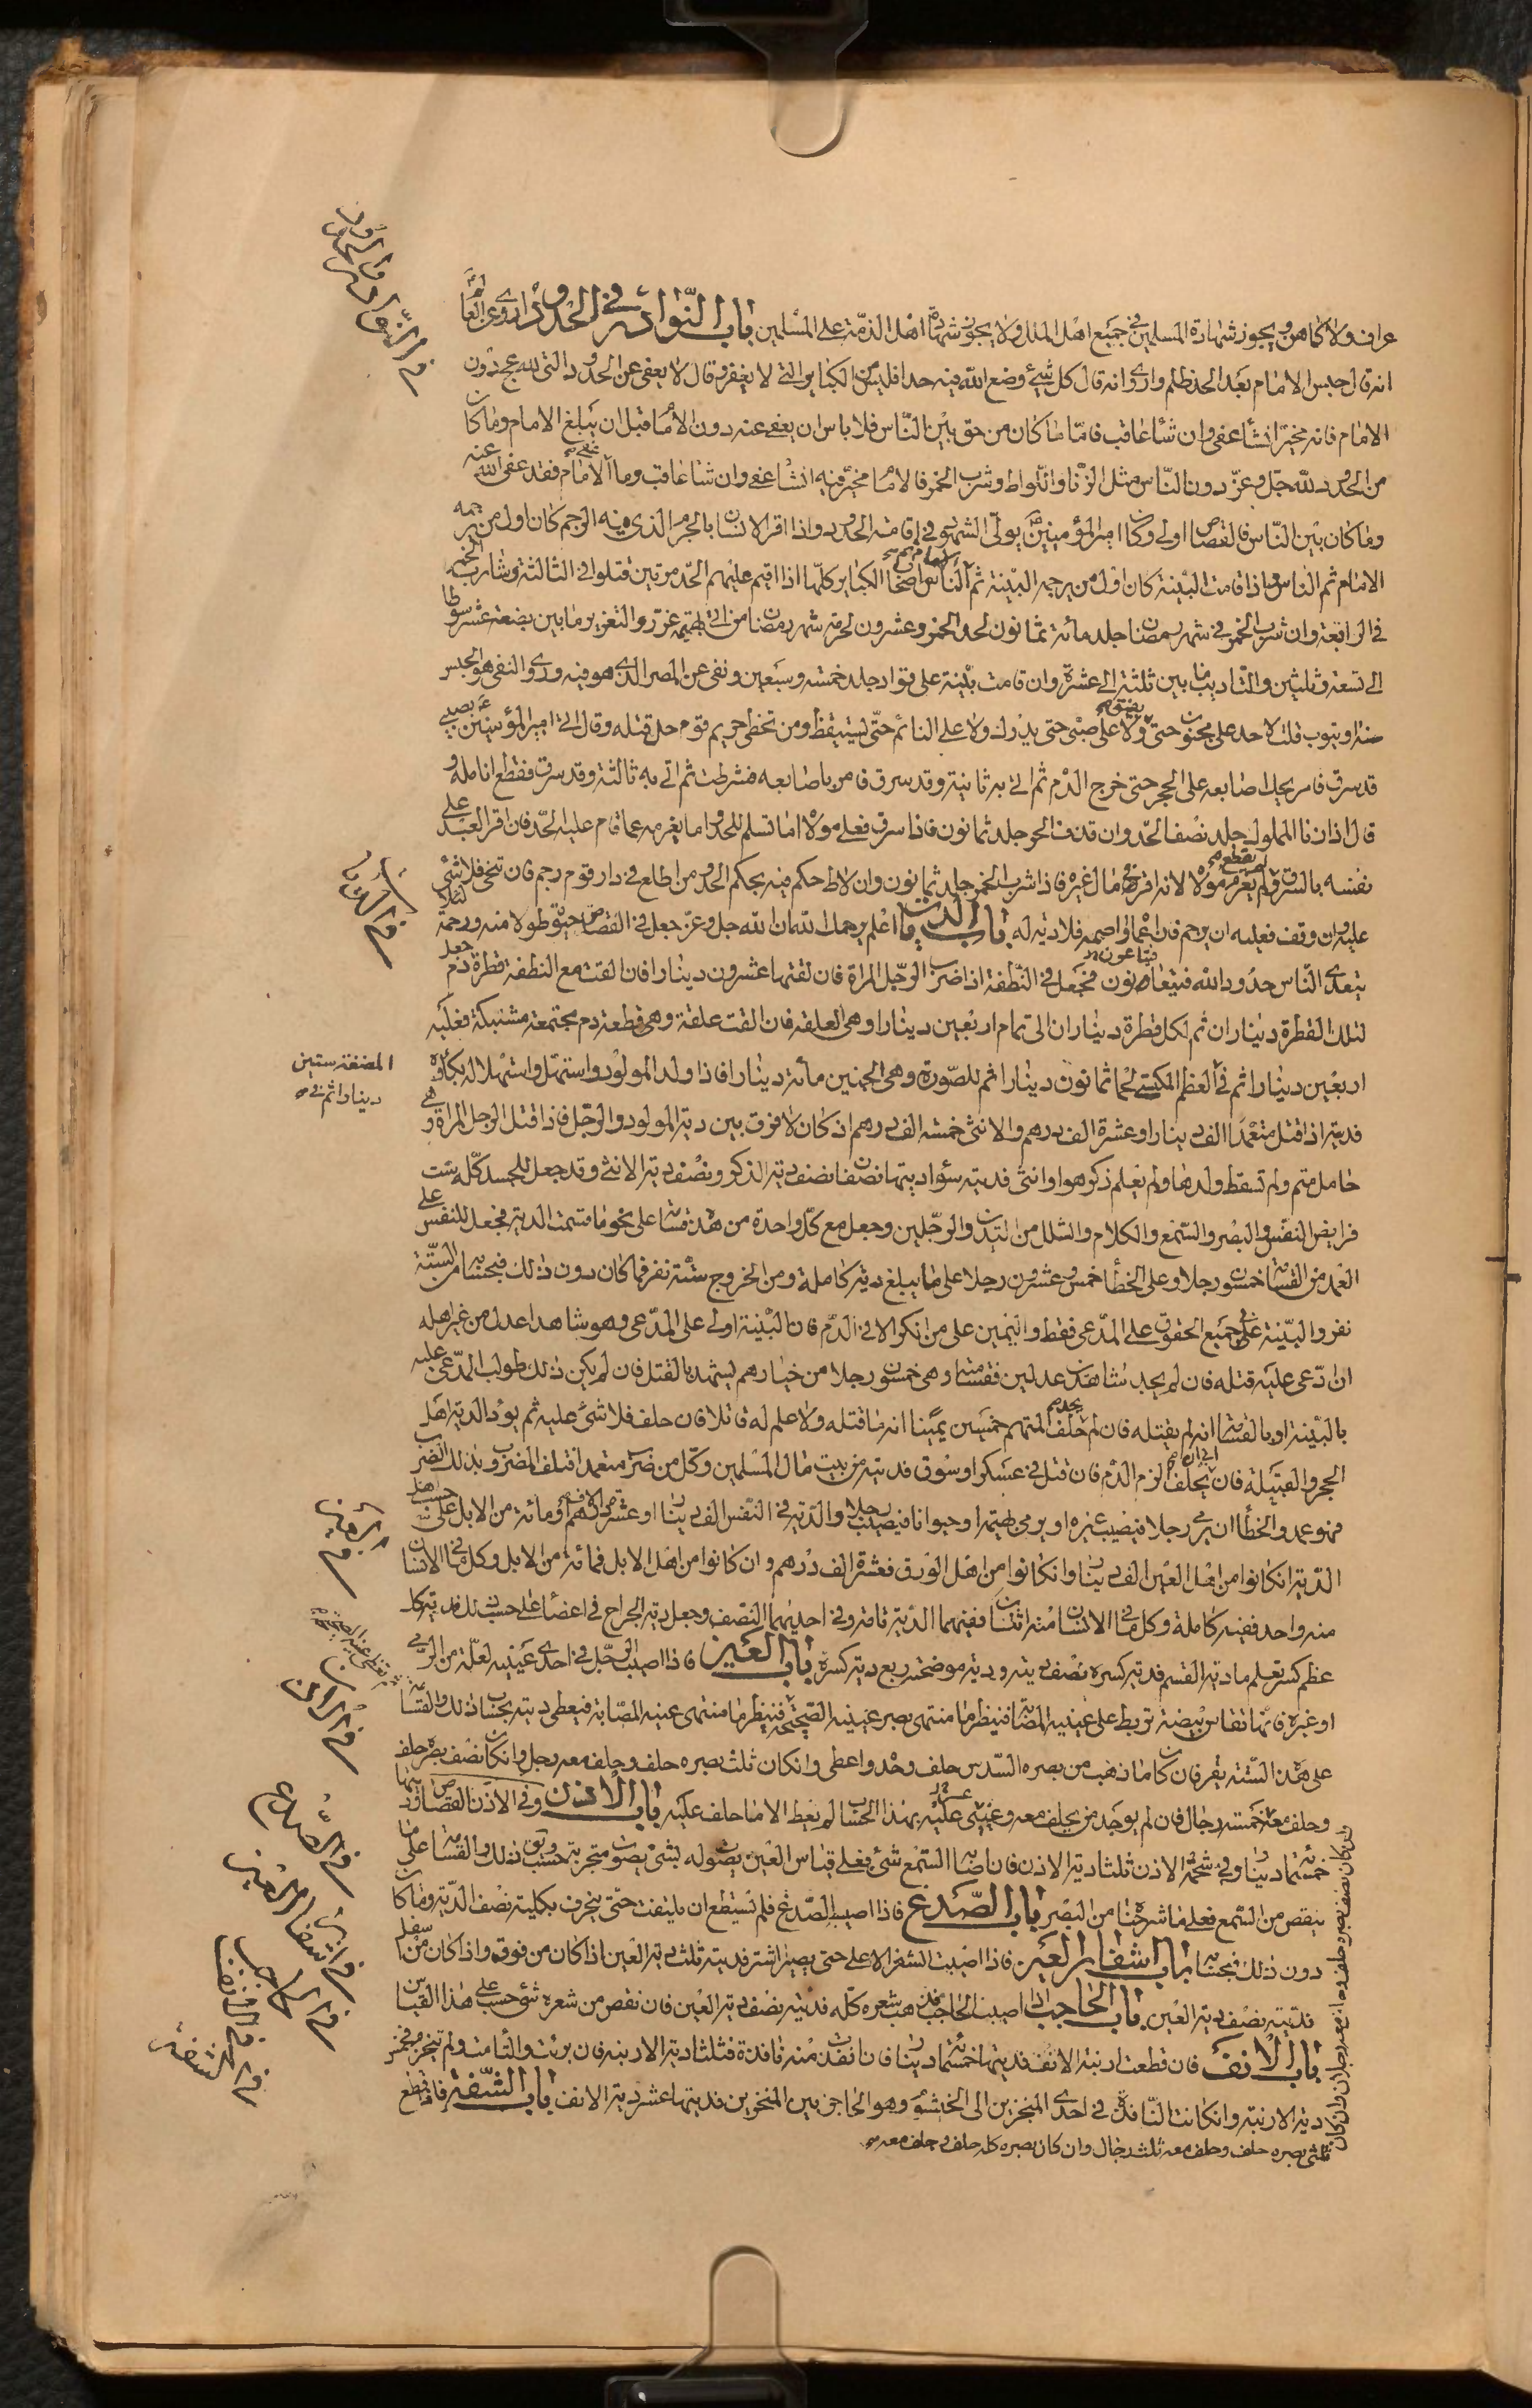 عراف ولا كاهن ويجوز شهادة المسلمين في جميع اهل الملل ولا يجوز شهادة اهل الذمة على المسلمين باب النوادر في الحدود اروي عن العالم
انه قال حبس الامام بعد الحد ظلم واروي انه قال كل شيء وضع الله فيه حدا فليس من الكبائر التي لا يغفر وقال لا يعفى عن الحدود التي لله عج دون
الامام فانه مخير ان شاء عفى وان شاء عاقب فاما ما كان من حق بين الناس فلا باس ان يعفى عنه دون الامام قبل ان يبلغ الامام وما كان
من الحدود لله جل وعز دون الناس مثل الزنا واللواط وشرب الخمر فالامام مخير فيه ان شاء عفى وان شاء عاقب وما عفى الامام فقد عفى الله عنه
وما كان بين الناس فالقصاص اولى وكان امير المؤمنين يولي الشهود في اقامة الحدود واذا اقر الانسان بالجرم الذي فيه الرجم كان اول من يرجمه
الامام ثم الناس واذا قامت البينة كان اول من يرجمه البينة ثم الامام ثم الناس اصحاب الكبائر كلها اذا اقيم عليهم الحد مرتين قتلوا في الثالثة وشارب الخمر
في الرابعة وان شرب الخمر في شهر رمضان جلد مائة ثمانون لحد الخمر وعشرون لحرمة شهر رمضان من اتى بهيمة عزر والتعزير ما بين بضعة عشر سوطا
الى تسعة وثلثين والتاديب ما بين ثلثة الى عشرة وان قامت بينة على قواد جلد خمسة وسبعين ونفي عن المصر الذي هو فيه وروي النفي هو الحبس
سنة او يتوب قلت لا حد على مجنون حتى يفيق ولا على صبي حتى يدرك ولا على النائم حتى يستيقظ ومن تخطى حريم قوم حل قتله وقال اتى امير المؤمنين ع بصبي
قد سرق فامر بحك اصابعه على الحجر حتى خرج الدم ثم اتي به ثانية وقد سرق فامر باصابعه فشرطت ثم اتي به ثالثة وقد سرق فقطع انامله و
قال اذا زنا المملوك جلد نصف الحد وان قذف الحر جلد ثمانون فاذا سرق فعلى مولاه اما تسلم للحد واما يغرمه عما قام عليه الحد فان اقر العبد على
نفسه بالسرق لم يقطع ولم يغرم مولاه لانه اقر في مال غيره فاذا شرب الخمر جلد ثمانون وان لاط حكم فيه بحكم الحد ومن اطلع في دار قوم رجم فان تنحى فلا شيء
عليه وان وقف فعليه ان يرجم فان اعماه او اصمه فلا دية له باب الديات اعلم يرحمك الله ان الله جل وعز جعل في القصاص حيوة طولا منه ورحمة لئلا
يتعدى الناس حدود الله فيتفانون فجعل في النطفة اذا ضرب الرجل المراة فان لقتها عشرون دينارا فان القت مع النطفة قطرة دم جعل
لتلك القطرة ديناران ثم لكل قطرة ديناران الى تمام اربعين دينارا وهي العلقة فان القت علقة وهي قطعة دم مجتمعة مشتبكة فعليه
اربعين دينارا ثم في العظم المكتسى لحما ثمانون دينارا ثم للصورة وهي الجنين مائة دينارا فاذا ولد المولود واستهل واستهلاله بكاؤه
فديته اذا قتل متعمدا الف دينار او عشرة الف درهم والانثى خمسة الف درهم اذ كان لا فرق بين دية المولود والرجل فاذا قتل الرجل المراة وهي
حامل متم ولم تسقط ولدها ولم يعلم ذكر هو او انثى فديته سواد ديتها نصفان نصف دية الذكر ونصف دية الانثى وقد جعل للجسد كله ست
فرايض النفس والبصر والسمع والكلام والشلل من اليدين والرجلين وجعل مع كل واحدة من هذه قسامة على نحو ما قسمت الدية فجعل للنفس على
العمد من القسامة خمسون رجلا وعلى الخطأ خمسة وعشرون رجلا على ما يبلغ دية كاملة ومن الخروج ستة نفر فما كان دون ذلك فبحسابه من الستة
نفر والبينة في جميع الحقوق على المدعي فقط واليمين على من انكر الا في الدم فان البينة اولى على المدعي وهو شاهدا عدل من غير اهله
ان ادعى عليه قتله فان لم يجد شاهدين عدلين فقسامة وهي خمسون رجلا من خيارهم يشهد بالقتل فان لم يكن ذلك طولب المدعى عليه
بالبينة او بالقسامة انه لم يقتله فان لم يجد حلف المتهم خمسين يمينا انه ما قتله ولا علم له قاتلا فان حلف فلا شيء عليه ثم يود الدية اهل
الحجر والقبيلة فان ابى ان يحلف الزم الدم فان قتل في عسكر او سوق فديته من بيت مال المسلمين وكل من ضرب متعمدا فتلف المضروب بذلك الضرب
فهو عمد والخطأ ان يرمي رجلا فيصيب غيره او يرمي بهيمة او حيوانا فيصيب رجلا والدية في النفس الف دينار او عشرة الاف درهم او مائة من الابل على حسب اهل
الدية ان كانوا من اهل العين الف دينار وان كانوا من اهل الورق فعشرة الف درهم وان كانوا من اهل الابل فمائة من الابل وكل ما في الانسان
منه واحد ففيه دية كاملة وكل ما في الانسان منه اثنان ففيهما الدية تامة وفي احديهما النصف وجعل دية الجراح في اعضائه على حسب ذلك فدية كل
عظم كسر تعلم ما دية القسم فدية كسره نصف ديته ودية موضحته ربع دية كسره باب العين فاذا اصيب الرجل في احدى عينيه لعلة من الرمي
او غيره فانها تقاس ببيضة تربط على عينه المصابة فينظر ما منتهى بصر عينه الصحيحة فينظر ما منتهى عينه المصابة فيعطى ديته بحساب ذلك والقسامة
على هذه الستة نفر فان كان ما ذهب من بصره السدس حلف وحده واعطي وان كان ثلث بصره حلف وحلف معه رجل وان كان نصف بصره حلف
وحلف معه خمسة رجال فان لم يوجد من يحلف معه وعسر عليه بهذا الحساب لم يعط الا ما حلف عليه باب الاذن وفي الاذن القصاص وديتها
خمسمائة دينار وفي شحمة الاذن ثلث دية الاذن فان اصاب السمع شيء فعلى قياس العين يصوت له بشيء يصوت متجربة وحسب ذلك والقسامة على ما
ينقص من السمع فعلى ما شرحناه من البصر باب الصدغ فاذا اصيب الصدغ فلم يستطع ان يلتفت حتى ينحرف بكليته نصف الدية وما كان
دون ذلك فبحسابه باب اشفار العين فاذا اصيبت الشفر الاعلى حتى يصير اشتر فديته ثلث دية العين اذا كان من فوق واذا كان من اسفل
فديته نصف دية العين باب الحاجب اذا اصيب الحاجب فذهب شعره كله فديته نصف دية العين فان نقص من شعره شيء حسب على هذا القياس
باب الانف فان قطعت ارنبة الانف فديتها خمسمائة دينار فان نفذت منه نافذة فثلثا دية الارنبة فان برئت والتأمت ولم تنخرم فخمس
دية الارنبة وان كانت النافذة في احدى المنخرين الى الخيشوم وهو الحاجز بين المنخرين فديتها عشر دية الانف باب الشفة فاذا قطع
المضغة ستين
دينارا ثم في
وان كان نصف بصره حلف وحلف معه رجلان وان كان
ثلثي بصره حلف وحلف معه ثلث رجال وان كان بصره كله حلف وحلف معه